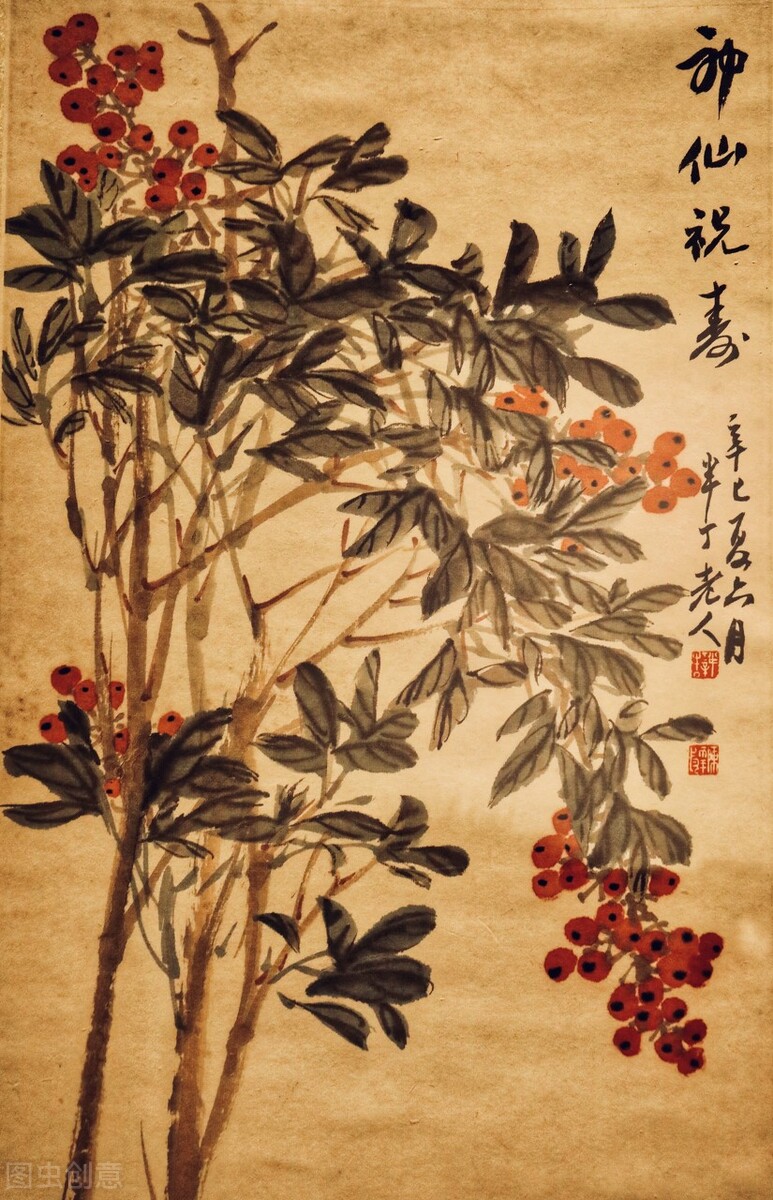 神仙祝寿
辛巳夏六月
半丁老人
图虫创意